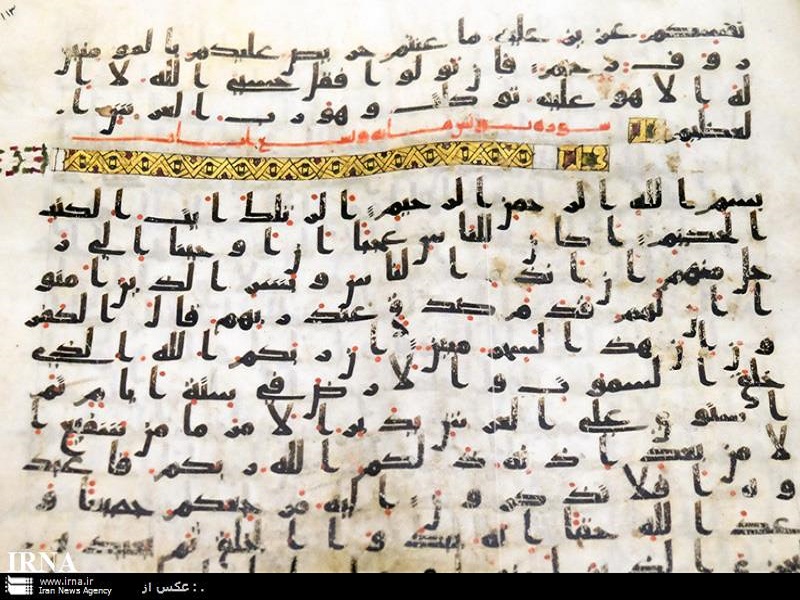 ١١٣
نفسكم عزيز عليه ما عنتم حريص عليكم بالمومنين
روف رحيم فان تولوا فقل حسبي الله لا ا
له الا هو عليه توكلت وهو رب العرش ا
لعظيم
سورة يونس مائة وتسع ايات
بسم الله الرحمن الرحيم الر تلك ايت الكتب
الحكيم اكان للناس عجبا ان اوحينا الى ر
جل منهم ان انذر الناس وبشر الذين امنو
ا ان لهم قدم صدق عند ربهم قال الكفر
ون ان هذا لسحر مبين ان ربكم الله الذي
خلق السموت والارض في ستة ايام ثم
استوى على العرش يدبر الامر ما من شفيع ا
لا من بعد اذنه ذلكم الله ربكم فاعبد
وه افلا تذكرون اليه مرجعكم جميعا و
عد الله حقا انه يبدوا الخلق ثم يعيده
IRNA
www.irna.ir
Iran News Agency
عکس از :.